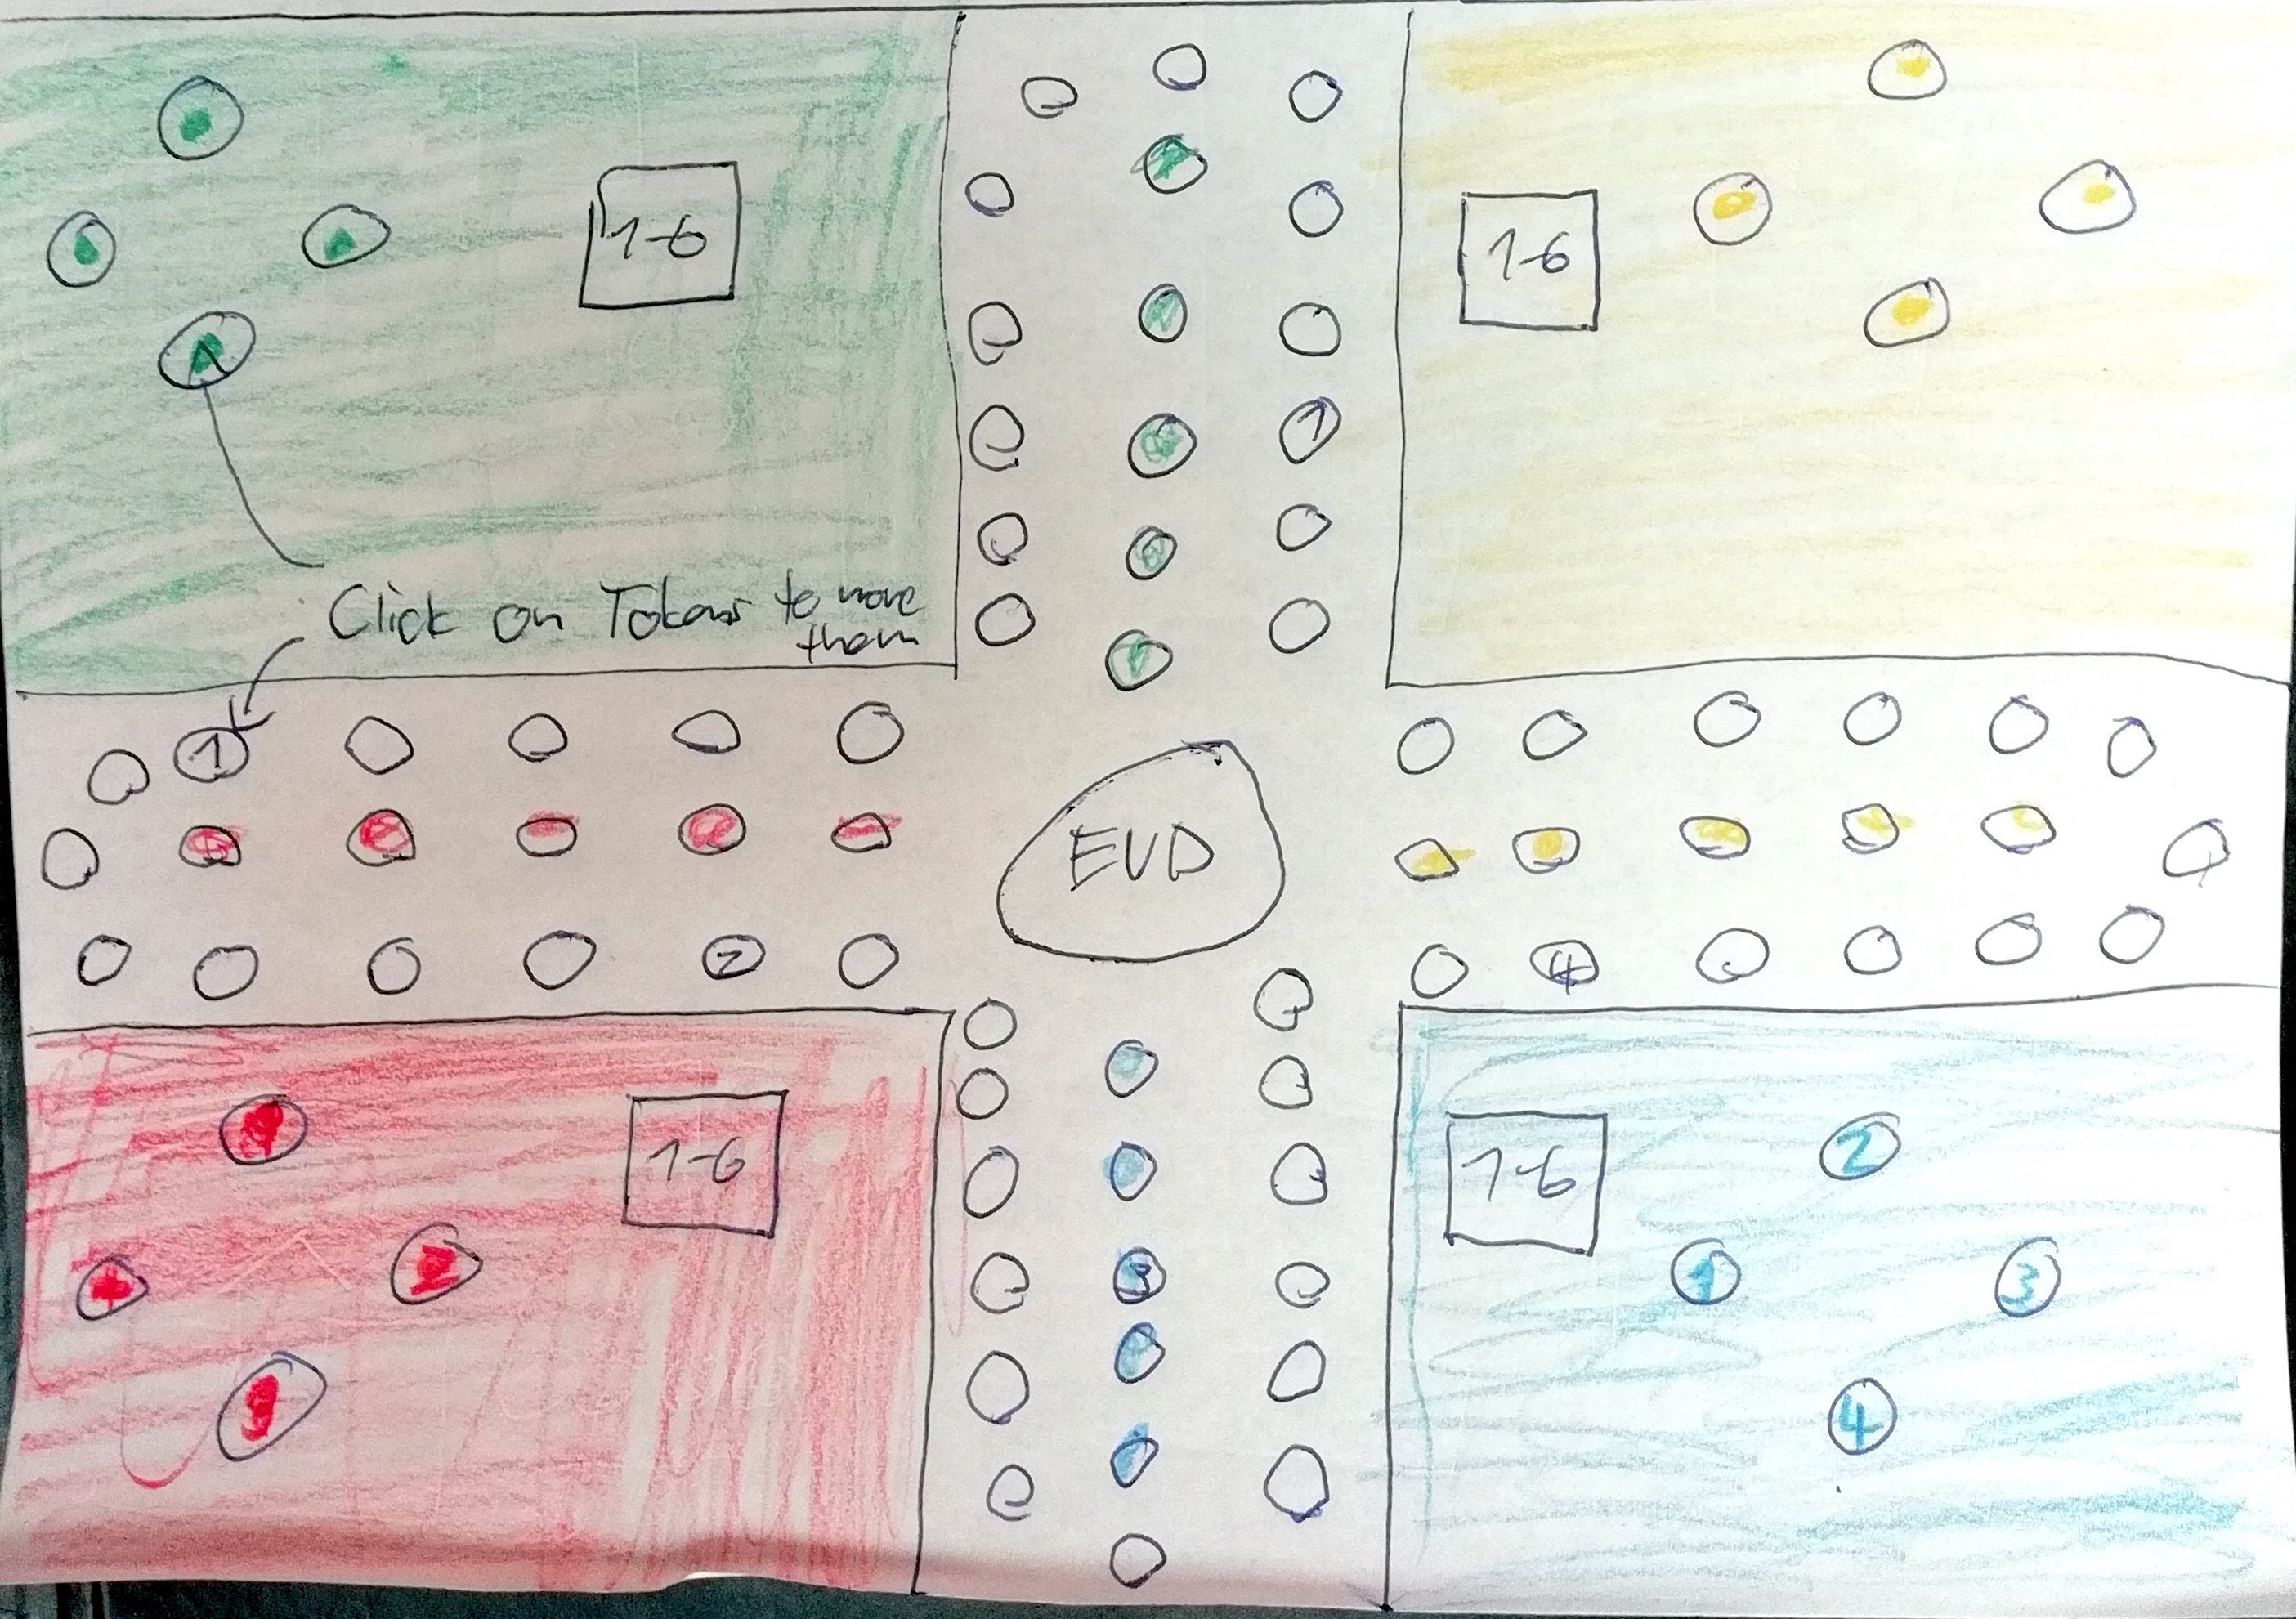 1-6
1-6
1
Click on Tokens to move
them
1
END
2
4
1-6
1-6
2
3
1
3
4